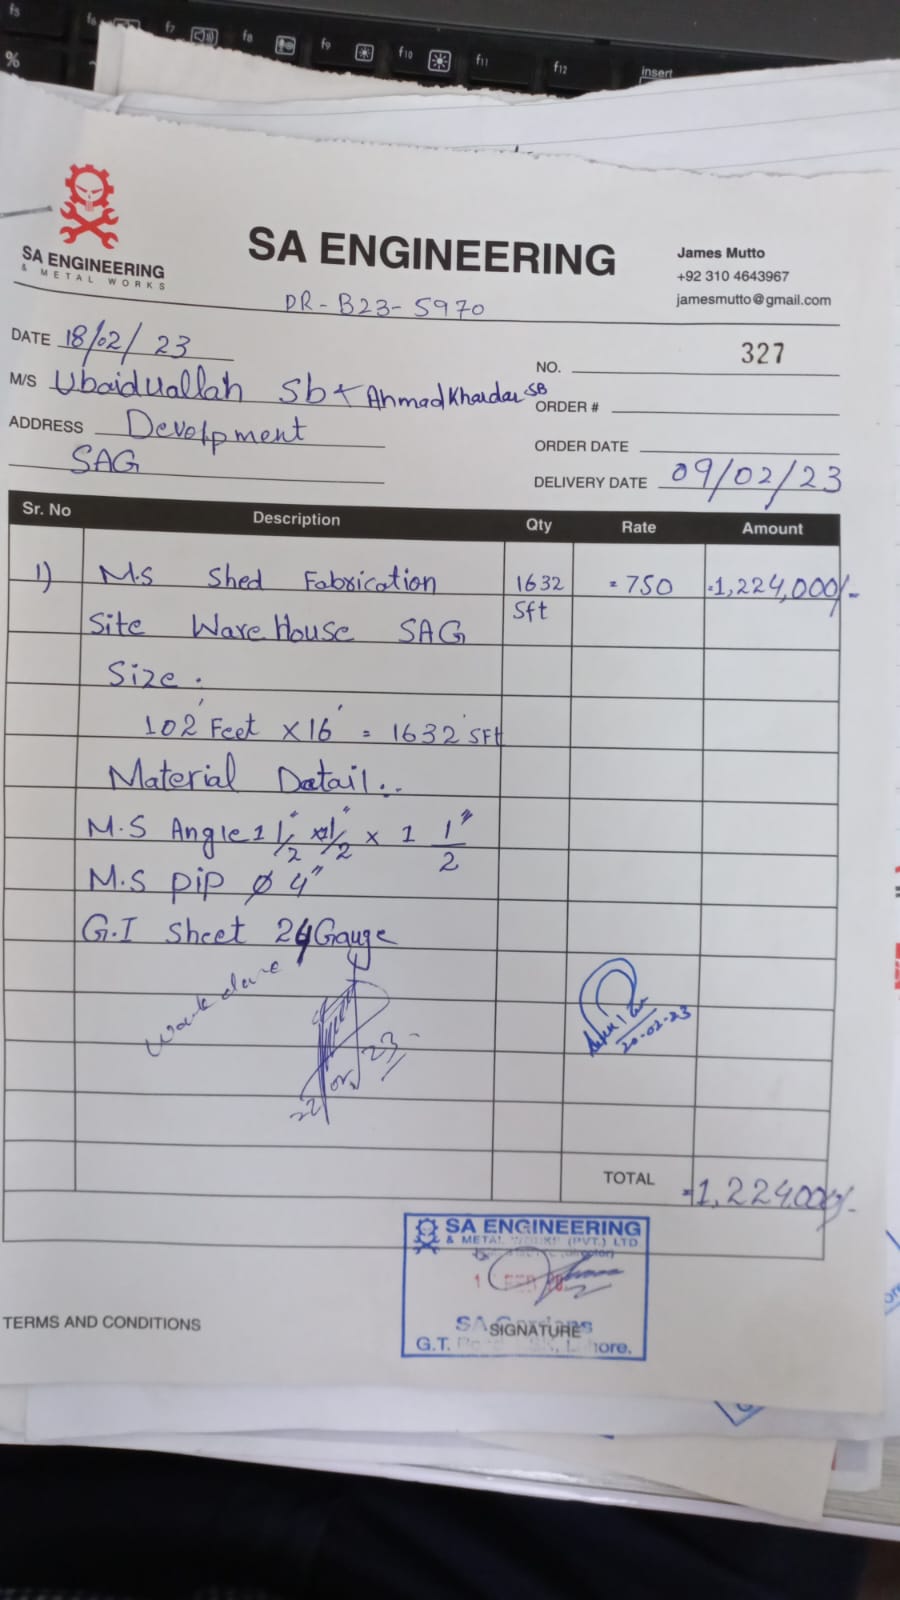 f5 f6 f7 f8 f9 f10 f11 f12 insert
%
SA ENGINEERING
& METAL WORKS
SA ENGINEERING
James Mutto
+92 310 4643967
jamesmutto@gmail.com
DR-B23-5970
DATE 18/02/23
NO. 327
M/S Ubaiduallah Sb + Ahmad Khardar SB
ORDER #
ADDRESS Devolpment
SAG
ORDER DATE
DELIVERY DATE 09/02/23
Sr. No Description Qty Rate Amount
1) M.S Shed Fabrication 1632 = 750 =1,224,000/-
Site WareHouse SAG Sft
Size.
102' Feet x 16' = 1632' SFt
Material Detail..
M.S Angle 1 1/2" x 1/2" x 1 1"/2
M.S pip ø 4"
G.I Sheet 24 Gauge
Work done
20-02-23
TOTAL =1,224,000/-
SA ENGINEERING
& METAL WORKS (PVT.) LTD
SIGNATURE
G.T. Lahore.
TERMS AND CONDITIONS